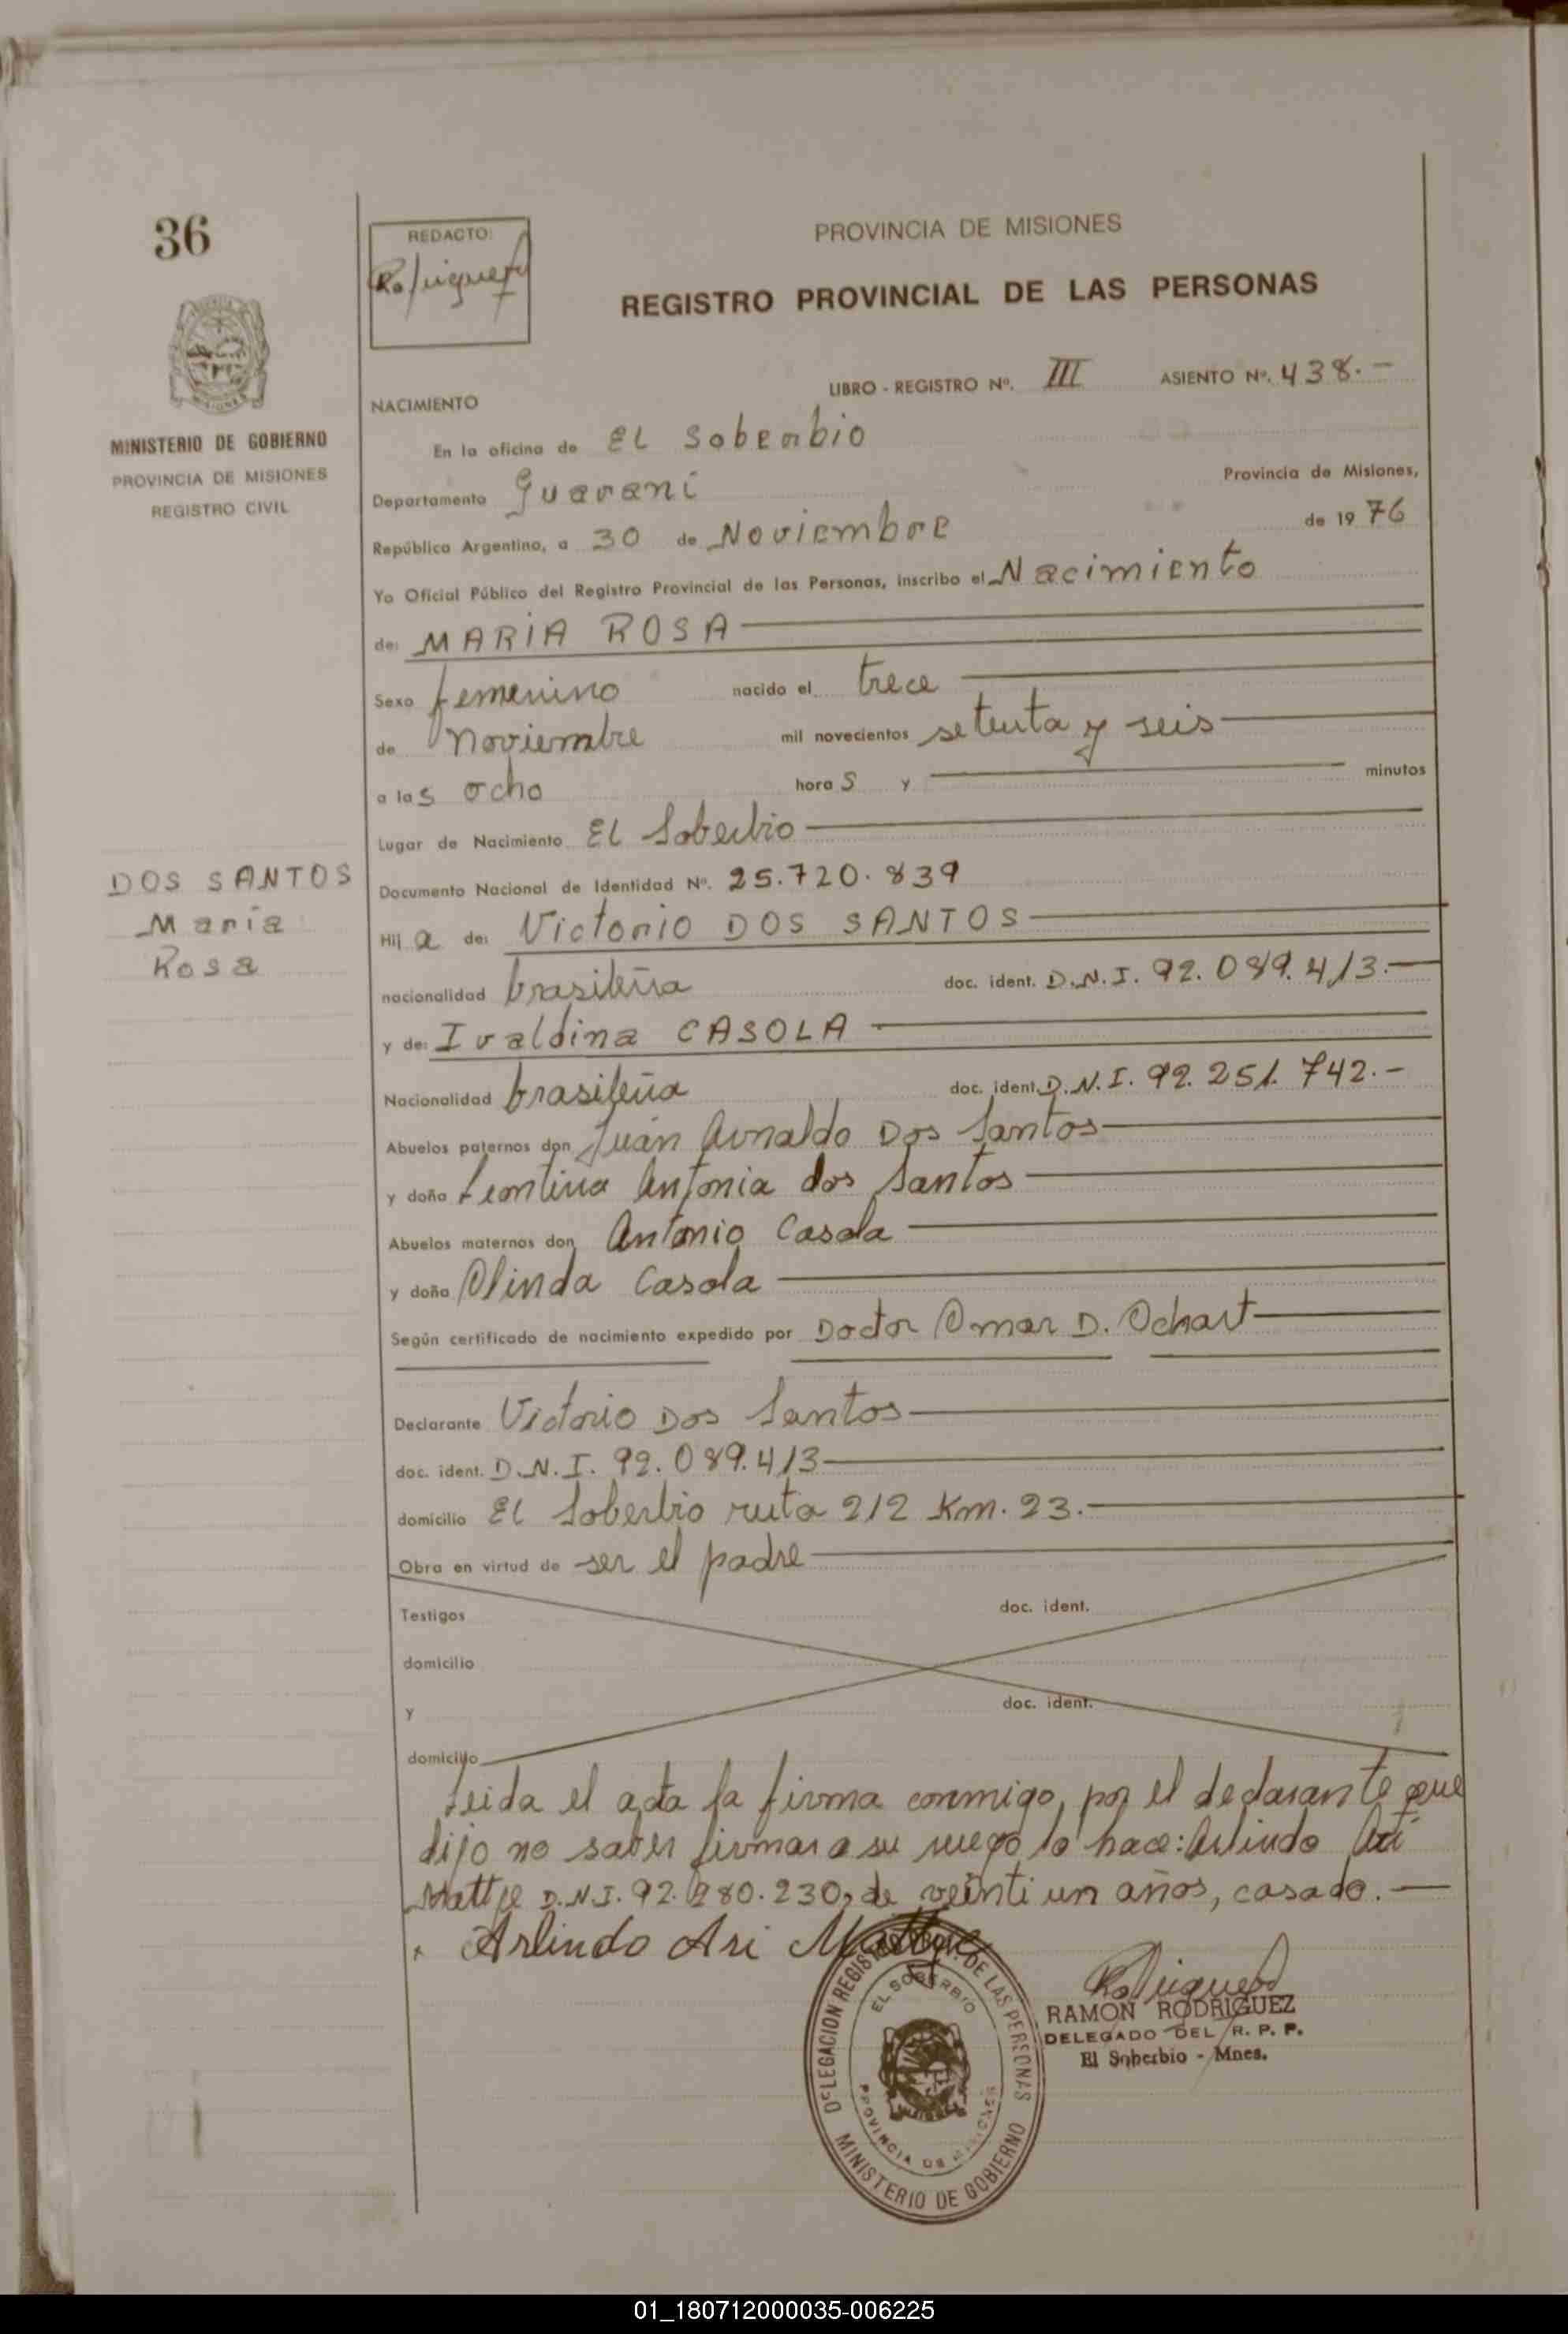 36
REDACTO:
Rodriguez
PROVINCIA DE MISIONES
REGISTRO PROVINCIAL DE LAS PERSONAS
MINISTERIO DE GOBIERNO
PROVINCIA DE MISIONES
REGISTRO CIVIL
LIBRO - REGISTRO Nº. III ASIENTO Nº. 438.-
NACIMIENTO
En la oficina de El Soberbio
Departamento Guaraní Provincia de Misiones,
República Argentina, a 30 de Noviembre de 1976
Yo Oficial Público del Registro Provincial de las Personas, inscribo el Nacimiento
de: MARIA ROSA
Sexo femenino nacido el trece
de noviembre mil novecientos setenta y seis
a las ocho horas y minutos
Lugar de Nacimiento El Soberbio
DOS SANTOS
María
Rosa
Documento Nacional de Identidad Nº. 25.720.839
Hija de: Victorio DOS SANTOS
nacionalidad brasileña doc. ident. D.N.I. 92.089.413.-
y de: Ivaldina CASOLA
Nacionalidad brasileña doc. ident. D.N.I. 92.251.742.-
Abuelos paternos don Juan Arnaldo Dos Santos
y doña Leontina Antonia dos Santos
Abuelos maternos don Antonio Casola
y doña Olinda Casola
Según certificado de nacimiento expedido por Doctor Omar D. Ochart
Declarante Victorio Dos Santos
doc. ident. D.N.I. 92.089.413
domicilio El Soberbio ruta 212 Km. 23.-
Obra en virtud de ser el padre
Testigos doc. ident.
domicilio
y doc. ident.
domicilio
Leida el acta la firma conmigo, por el declarante que
dijo no saber firmar a su ruego lo hace: Arlindo Ari
D.N.I. 92.280.230, de veinti un años, casado.-
Arlindo Ari
Rodriguez
RAMON RODRIGUEZ
DELEGADO DEL R. P. P.
El Soberbio - Mnes.
DELEGACION REGISTRO PROV. DE LAS PERSONAS
EL SOBERBIO
PROVINCIA DE MISIONES
MINISTERIO DE GOBIERNO
01_180712000035-006225